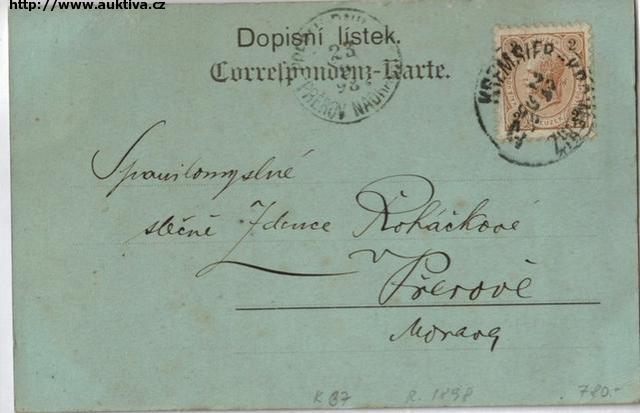 http://www.auktiva.cz
Dopisní lístek.
Correspondenz-Karte.
PŘEROV NÁDRAŽÍ
23
98
KREMSIER-KROMĚŘÍŽ
23
98
2
Spanilomyslné
slečně Zdence Roháčkové
v
Přerově
Morava
K 67
R. 1898
780.-